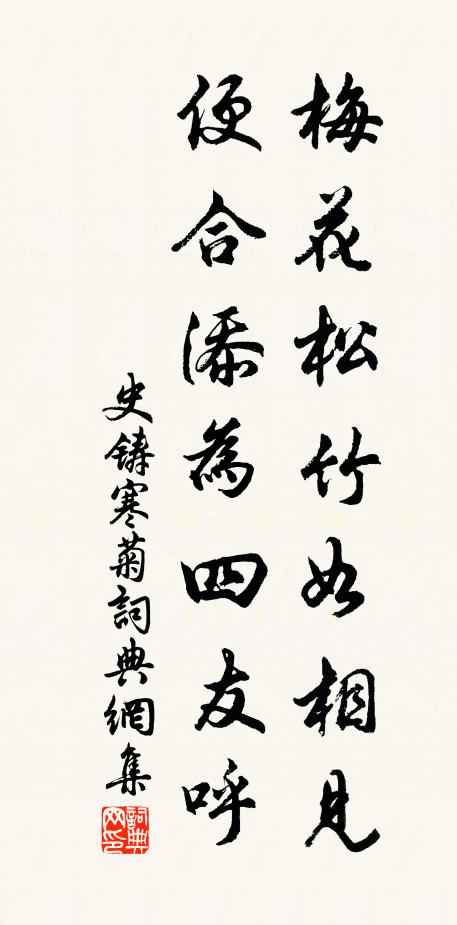 梅花松竹如相見
便合添為四友呼
史鑄寒菊詞典網集
詞典網印